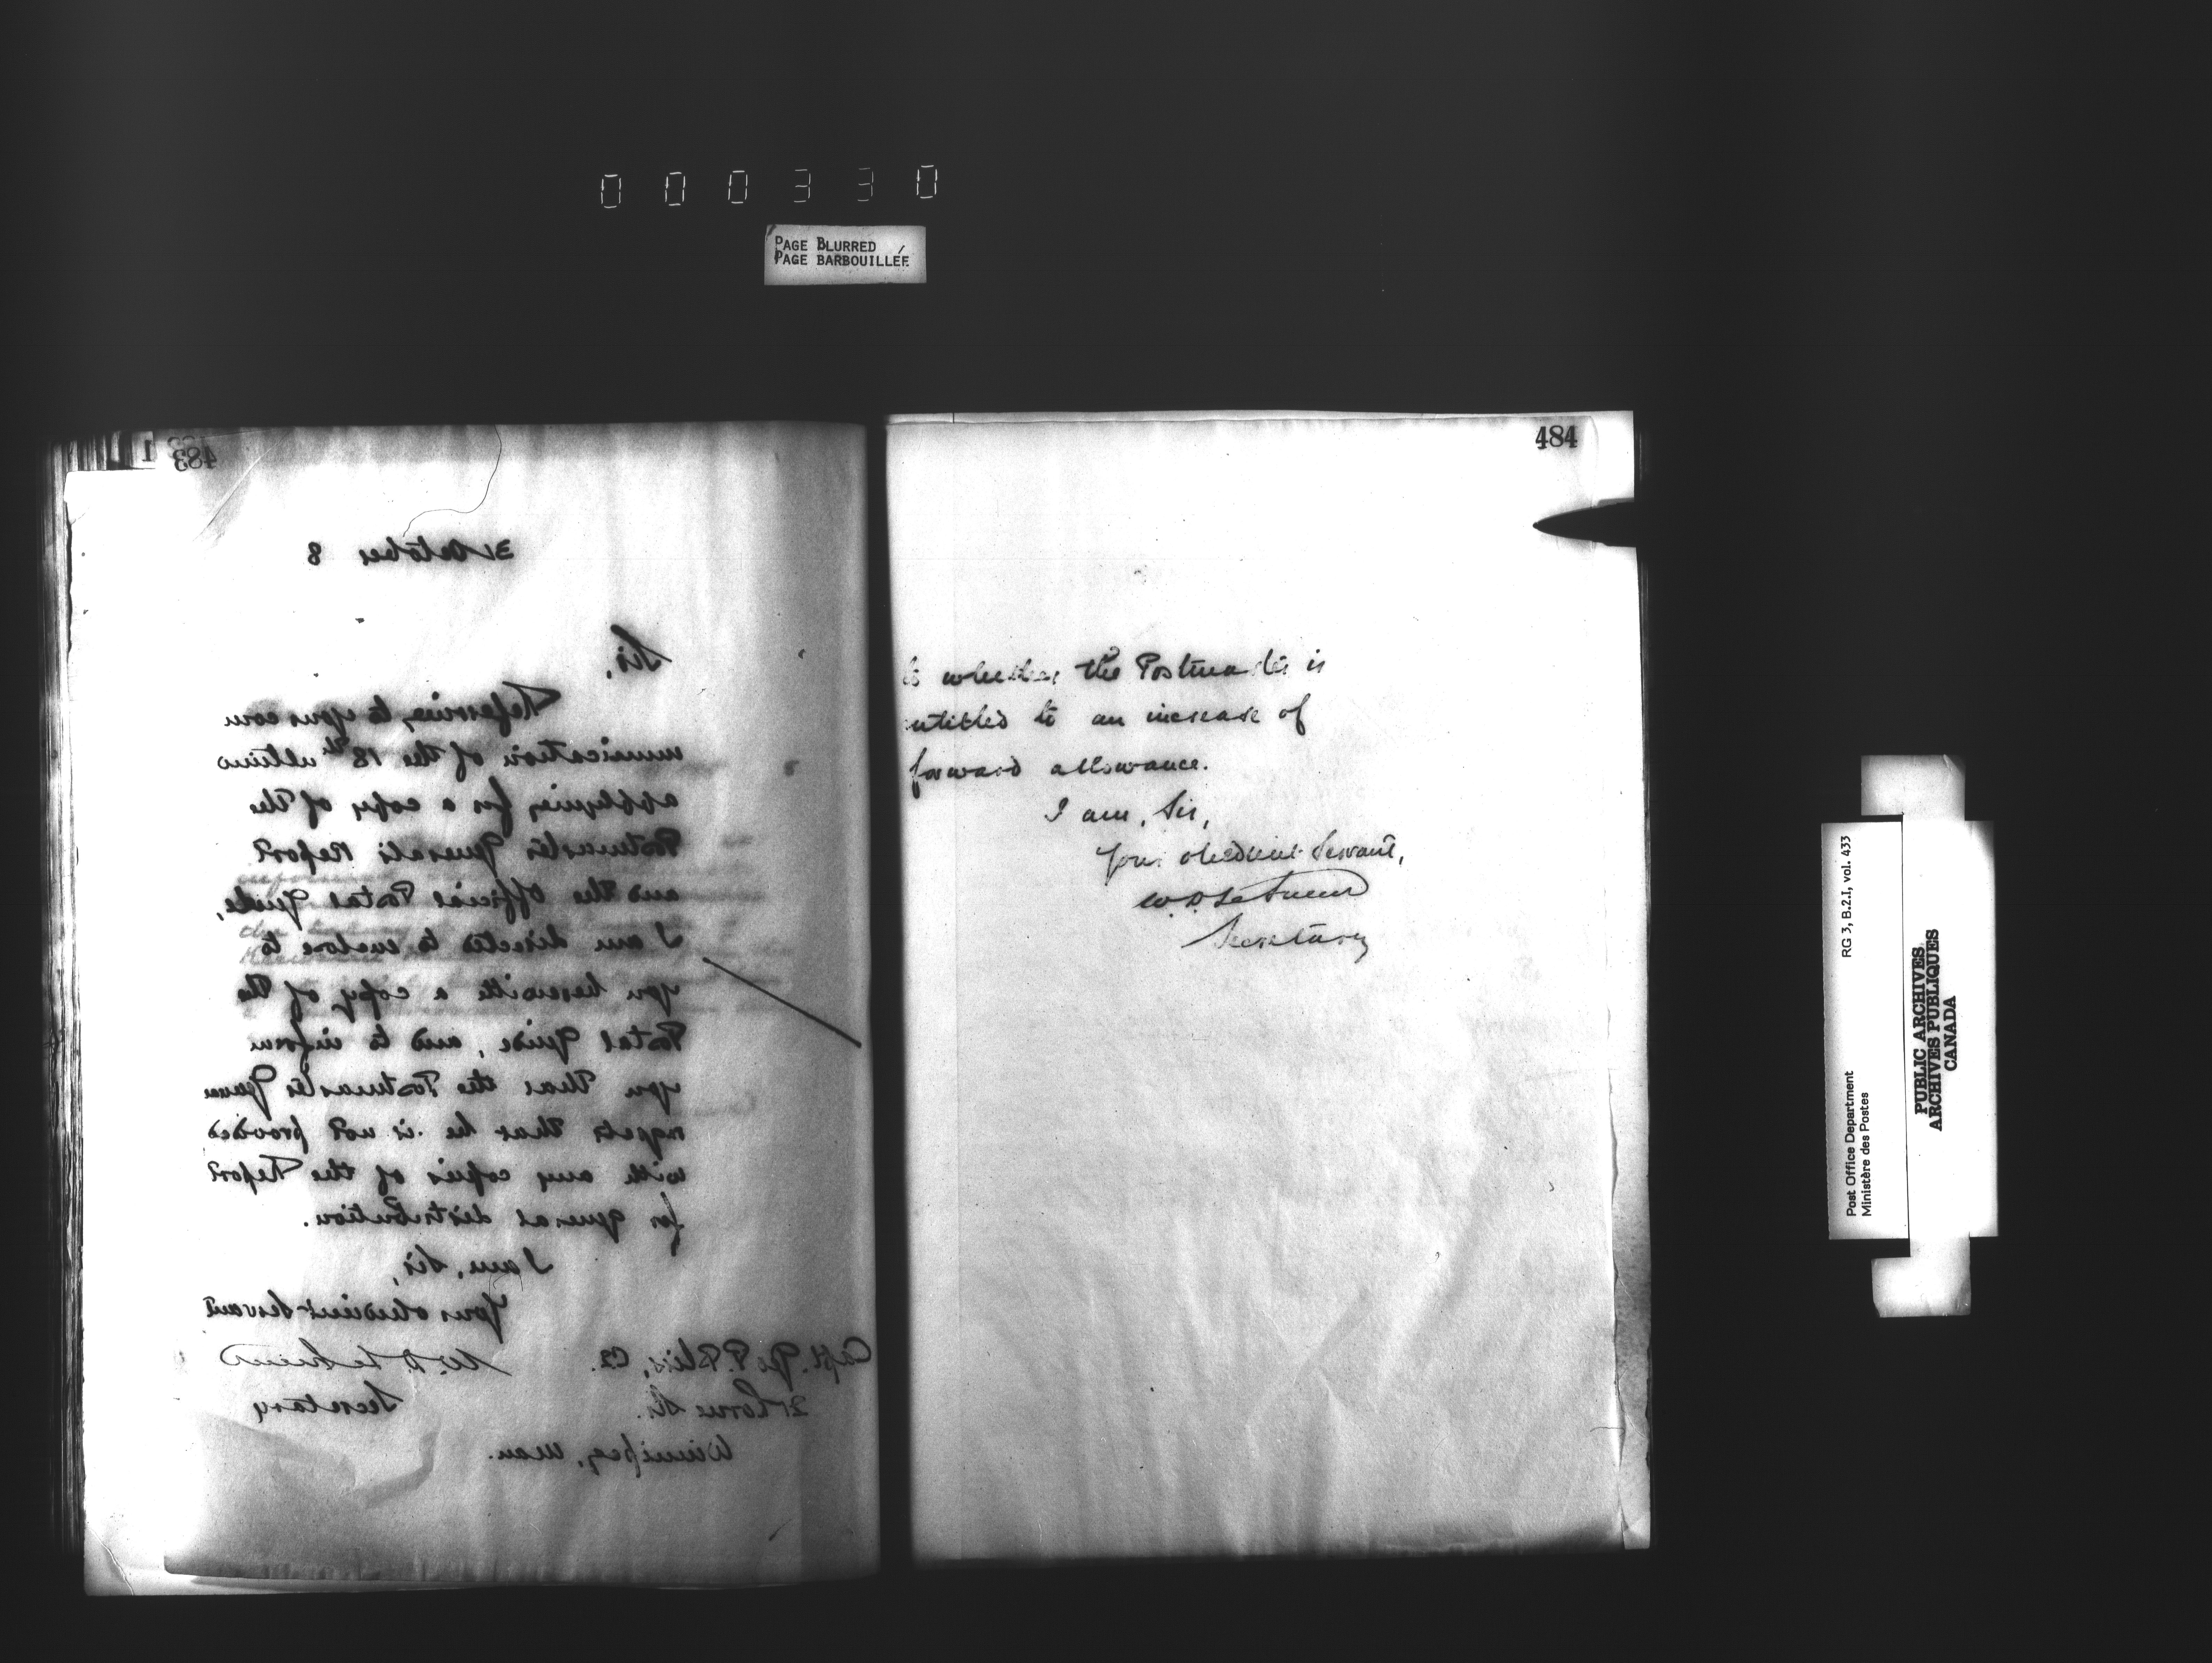 000330
PAGE BLURRED
PAGE BARBOUILLÉE
483
31 October 8
Sir,
Referring to your com
munication of the 18th ultimo
applying for a copy of the
Postmaster Generals Report
and the Official Postal Guide,
I am directed to enclose to
you herewith a copy of the
Postal Guide, and to inform
you that the Postmaster
regrets that he is not provided
with any copies of the Report
for general distribution.
I am, Sir,
Your obedient Servant
W. D. LeSueur
Secretary
Capt. Geo P. Bliss,
21 Lorne St.
Winnipeg, Man.
484
whether the Postmaster is
entitled to an increase of
forward allowance.
I am, Sir,
Your obedient Servant,
W. D. LeSueur
Secretary
Post Office Department
Ministère des Postes
RG 3, B.2.I, vol. 433
PUBLIC ARCHIVES
ARCHIVES PUBLIQUES
CANADA